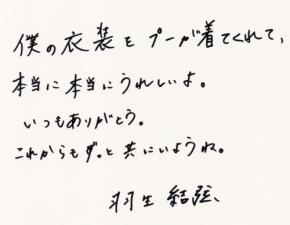 僕の衣装をプーが着てくれて、
本当に本当にうれしいよ。
いつもありがとう。
これからもずっと共にいようね。
羽生結弦、